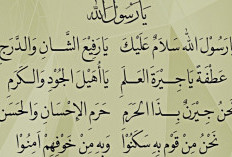 يَارَسُوْلَ اللّٰه
يَارَسُوْلَ اللّٰه سَلَامٌ عَلَيْكَ يَارَفِيْعَ الشَّانِ وَالدَّرَجِ
عَطْفَةً يَاجِيْرَةَ الْعَلَمِ يَاأُهَيْلَ الْجُوْدِ وَالْكَرَمِ
نَحْنُ جِيْرَنٌ بِذَا الْحَرَمِ حَرَمِ الْإِحْسَانِ وَالْحَسَنِ
نَحْنُ مِنْ قَوْمٍ بِهِ سَكَنُوْا وَبِهِ مِنْ خَوْفِهِمْ اٰمِنُوْا